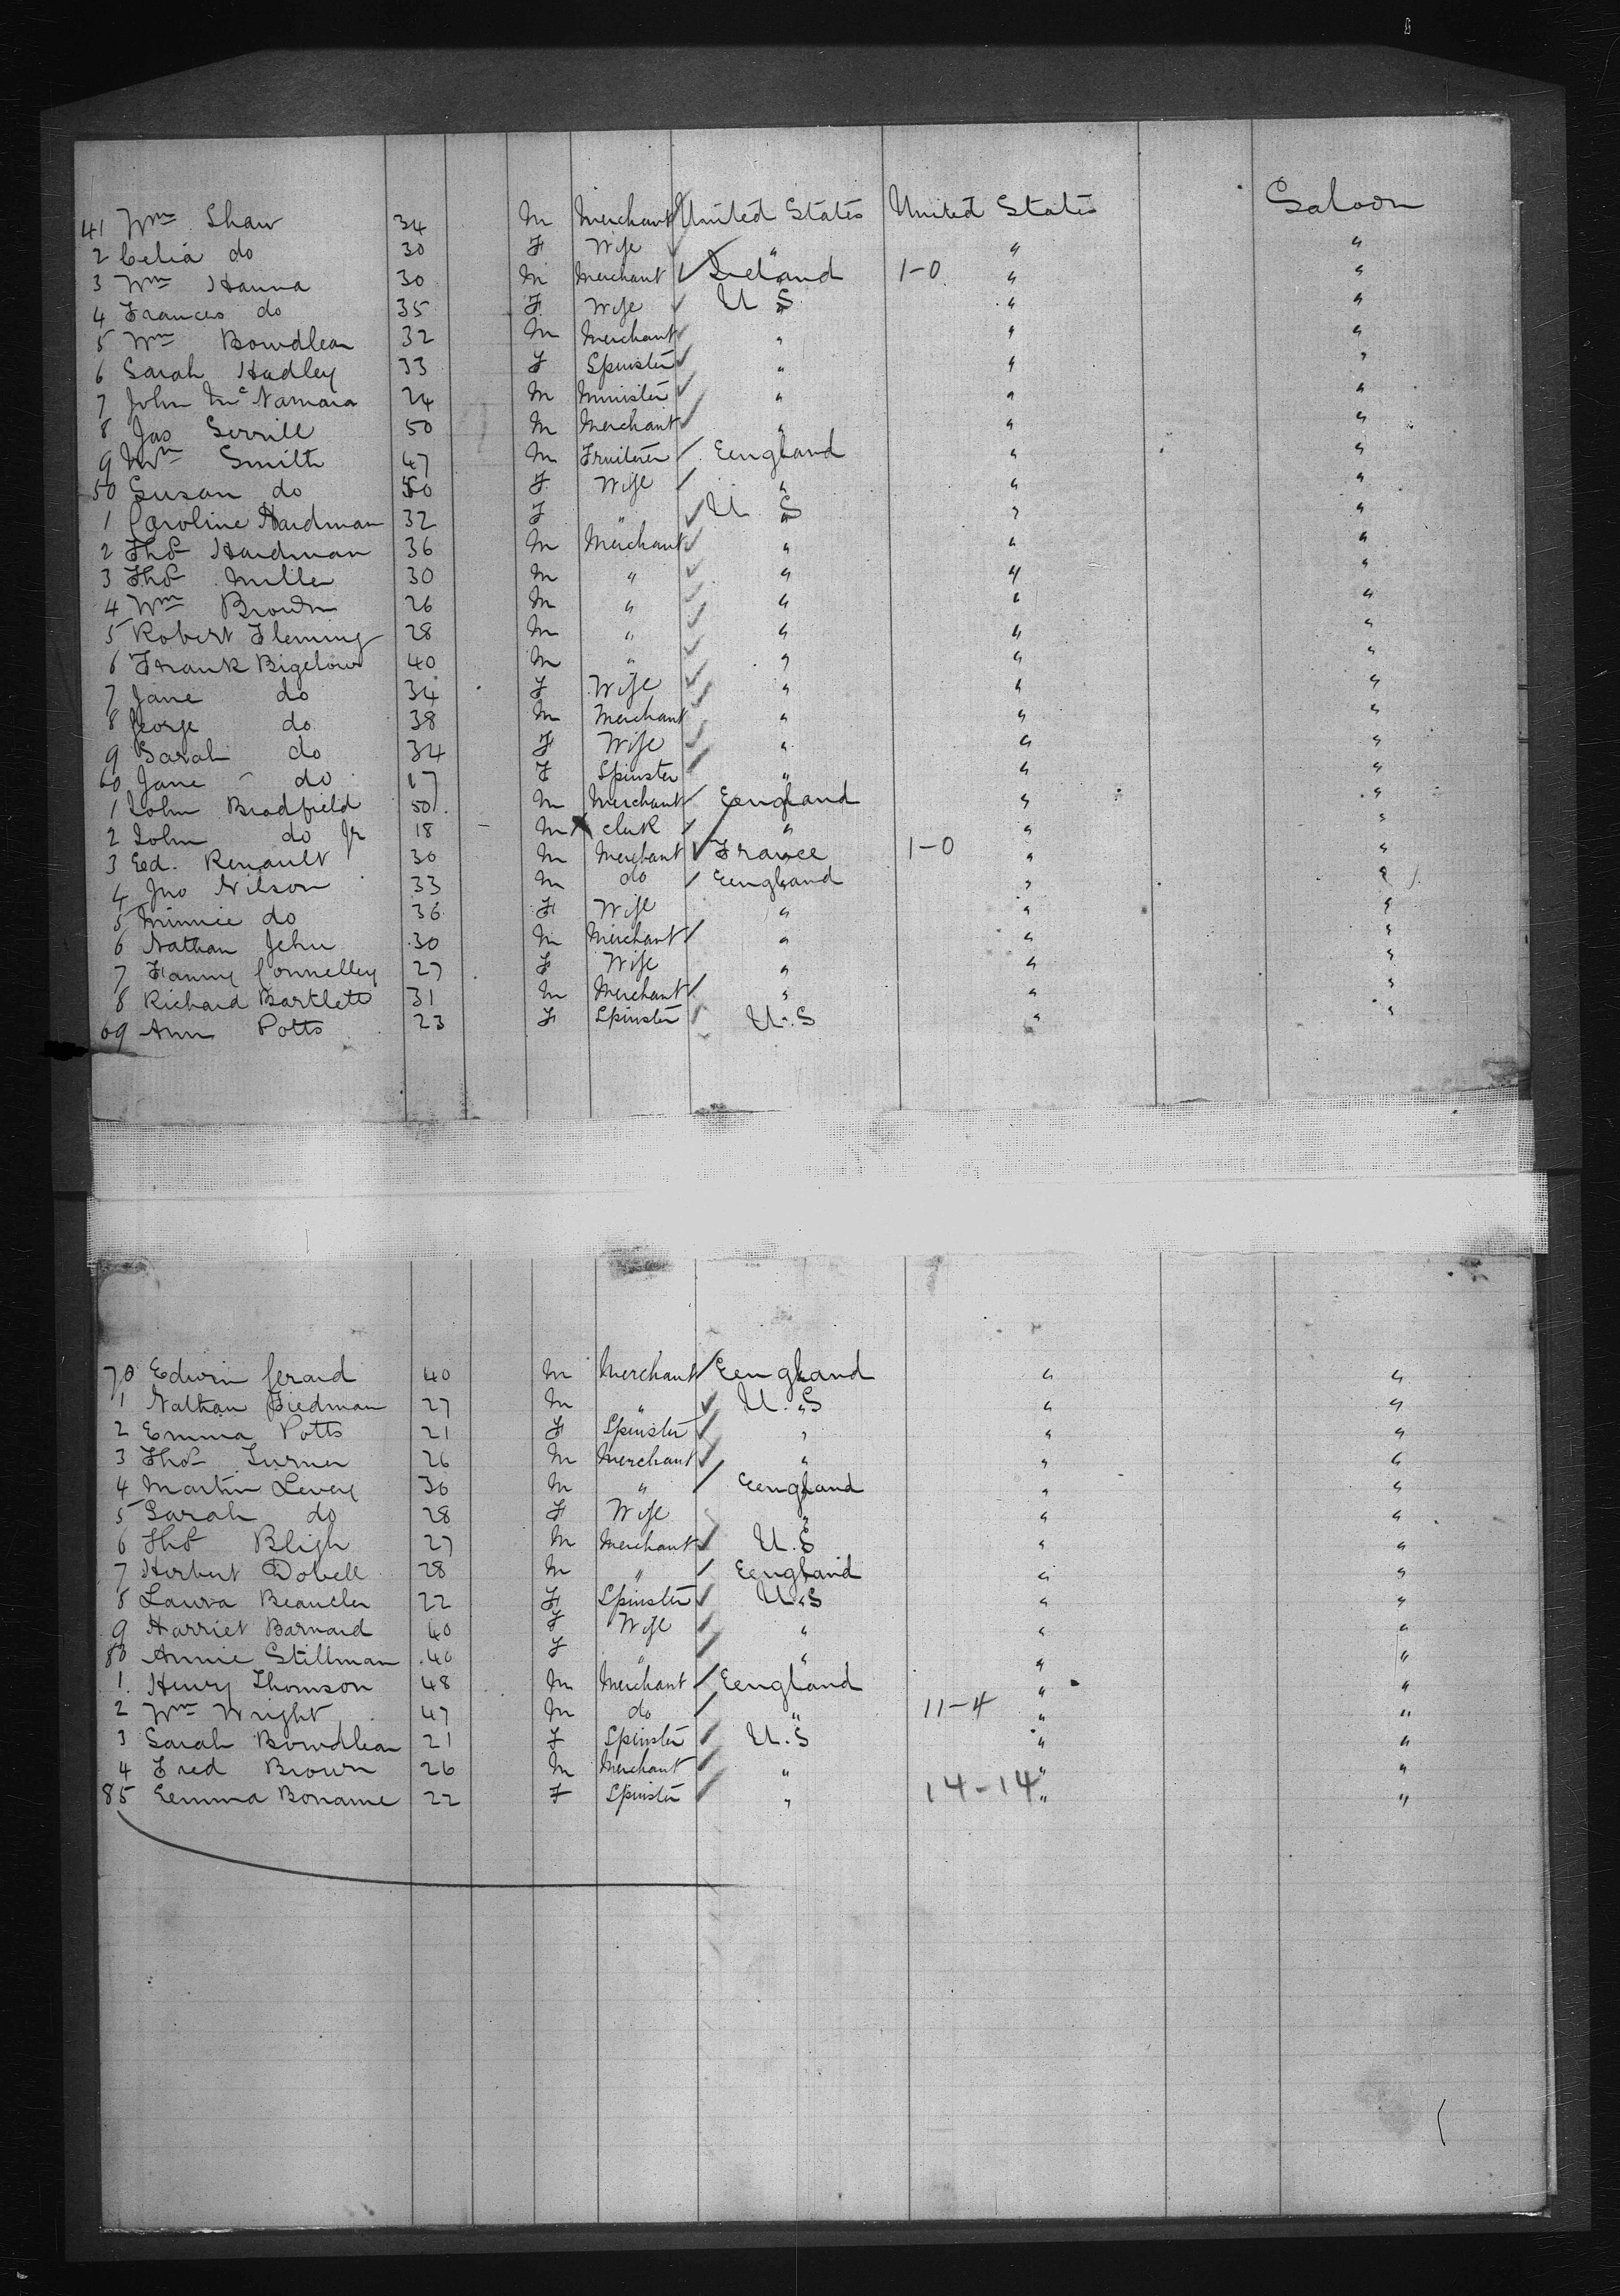 41 Wm Shaw 34 M Merchant United States United States Saloon
2 Celia do 30 F Wife " " "
3 Wm Hanna 30 M Merchant Ireland 1-0 " "
4 Frances do 35 F Wife U S " "
5 Wm Bowdlear 32 M Merchant " " "
6 Sarah Hadley 33 F Spinster " " "
7 John McNamara 24 M Minister " " "
8 Jas Serrill 50 M Merchant " " "
9 Wm Smith 47 M Fruiterer Eengland " "
50 Susan do 50 F Wife " " "
1 Caroline Hardman 32 F " U S " "
2 Thos Hardman 36 M Merchant " " "
3 Thos Miller 30 M " " " "
4 Wm Brown 26 M " " " "
5 Robert Fleming 28 M " " " "
6 Frank Bigelow 40 M " " " "
7 Jane do 34 F Wife " " "
8 George do 38 M Merchant " " "
9 Sarah do 34 F Wife " " "
60 Jane do 17 F Spinster " " "
1 John Bradfield 50 M Merchant Eengland " "
2 John do Jr 18 M X clerk " " "
3 Ed. Renault 30 M Merchant France 1-0 " "
4 Jno Wilson 33 M do Eengland " "
5 Minnie do 36 F Wife " " "
6 Nathan Jehu 30 M Merchant " " "
7 Fanny Connelley 27 F Wife " " "
8 Richard Bartlett 31 M Merchant " " "
69 Ann Potts 23 F Spinster U.S " "
70 Edwin Gerard 40 M Merchant Eengland " "
1 Nathan Fiedman 27 M " U.S " "
2 Emma Potts 21 F Spinster " " "
3 Thos Turner 26 M Merchant " " "
4 Martin Levey 36 M " Eengland " "
5 Sarah do 28 F Wife " " "
6 Thos Bligh 27 M Merchant U.S " "
7 Herbert Dobell 28 M " Eengland " "
8 Laura Beaucler 22 F Spinster U.S " "
9 Harriet Barnard 40 F Wife " " "
80 Annie Stillman 40 F " " " "
1 Henry Thomson 48 M Merchant Eengland " "
2 Wm Wright 47 M do " 11-4 " "
3 Sarah Bowdlear 21 F Spinster U.S " "
4 Fred Brown 26 M Merchant " " "
85 Eemma Boname 22 F Spinster " 14-14 " "